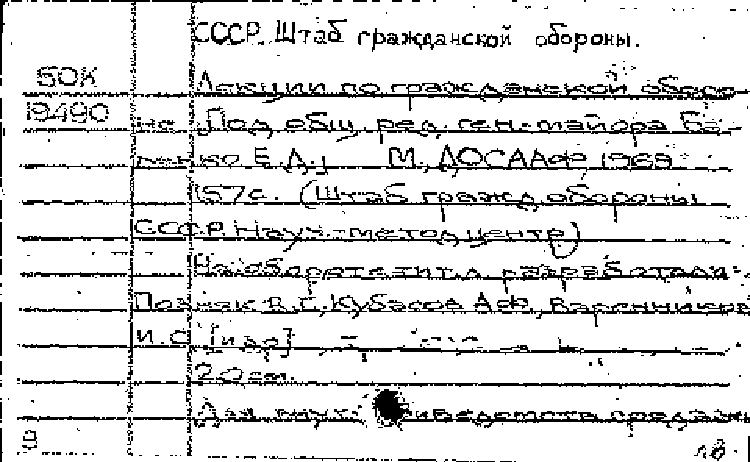 СССР. Штаб гражданской обороны.
50К
19490
Лекции по гражданской оборо-
не. Под общ. ред. ген.-майора
Е.Д.] М., ДОСААФ, 1969
157 с. (Штаб гражд. обороны
СССР. Науч.-метод. центр)
На обороте тит. л. разработали:
Позняк В.Г., Кубасов А.Ф., Варенников
И.С. [и др.]
20 см.
Для внут